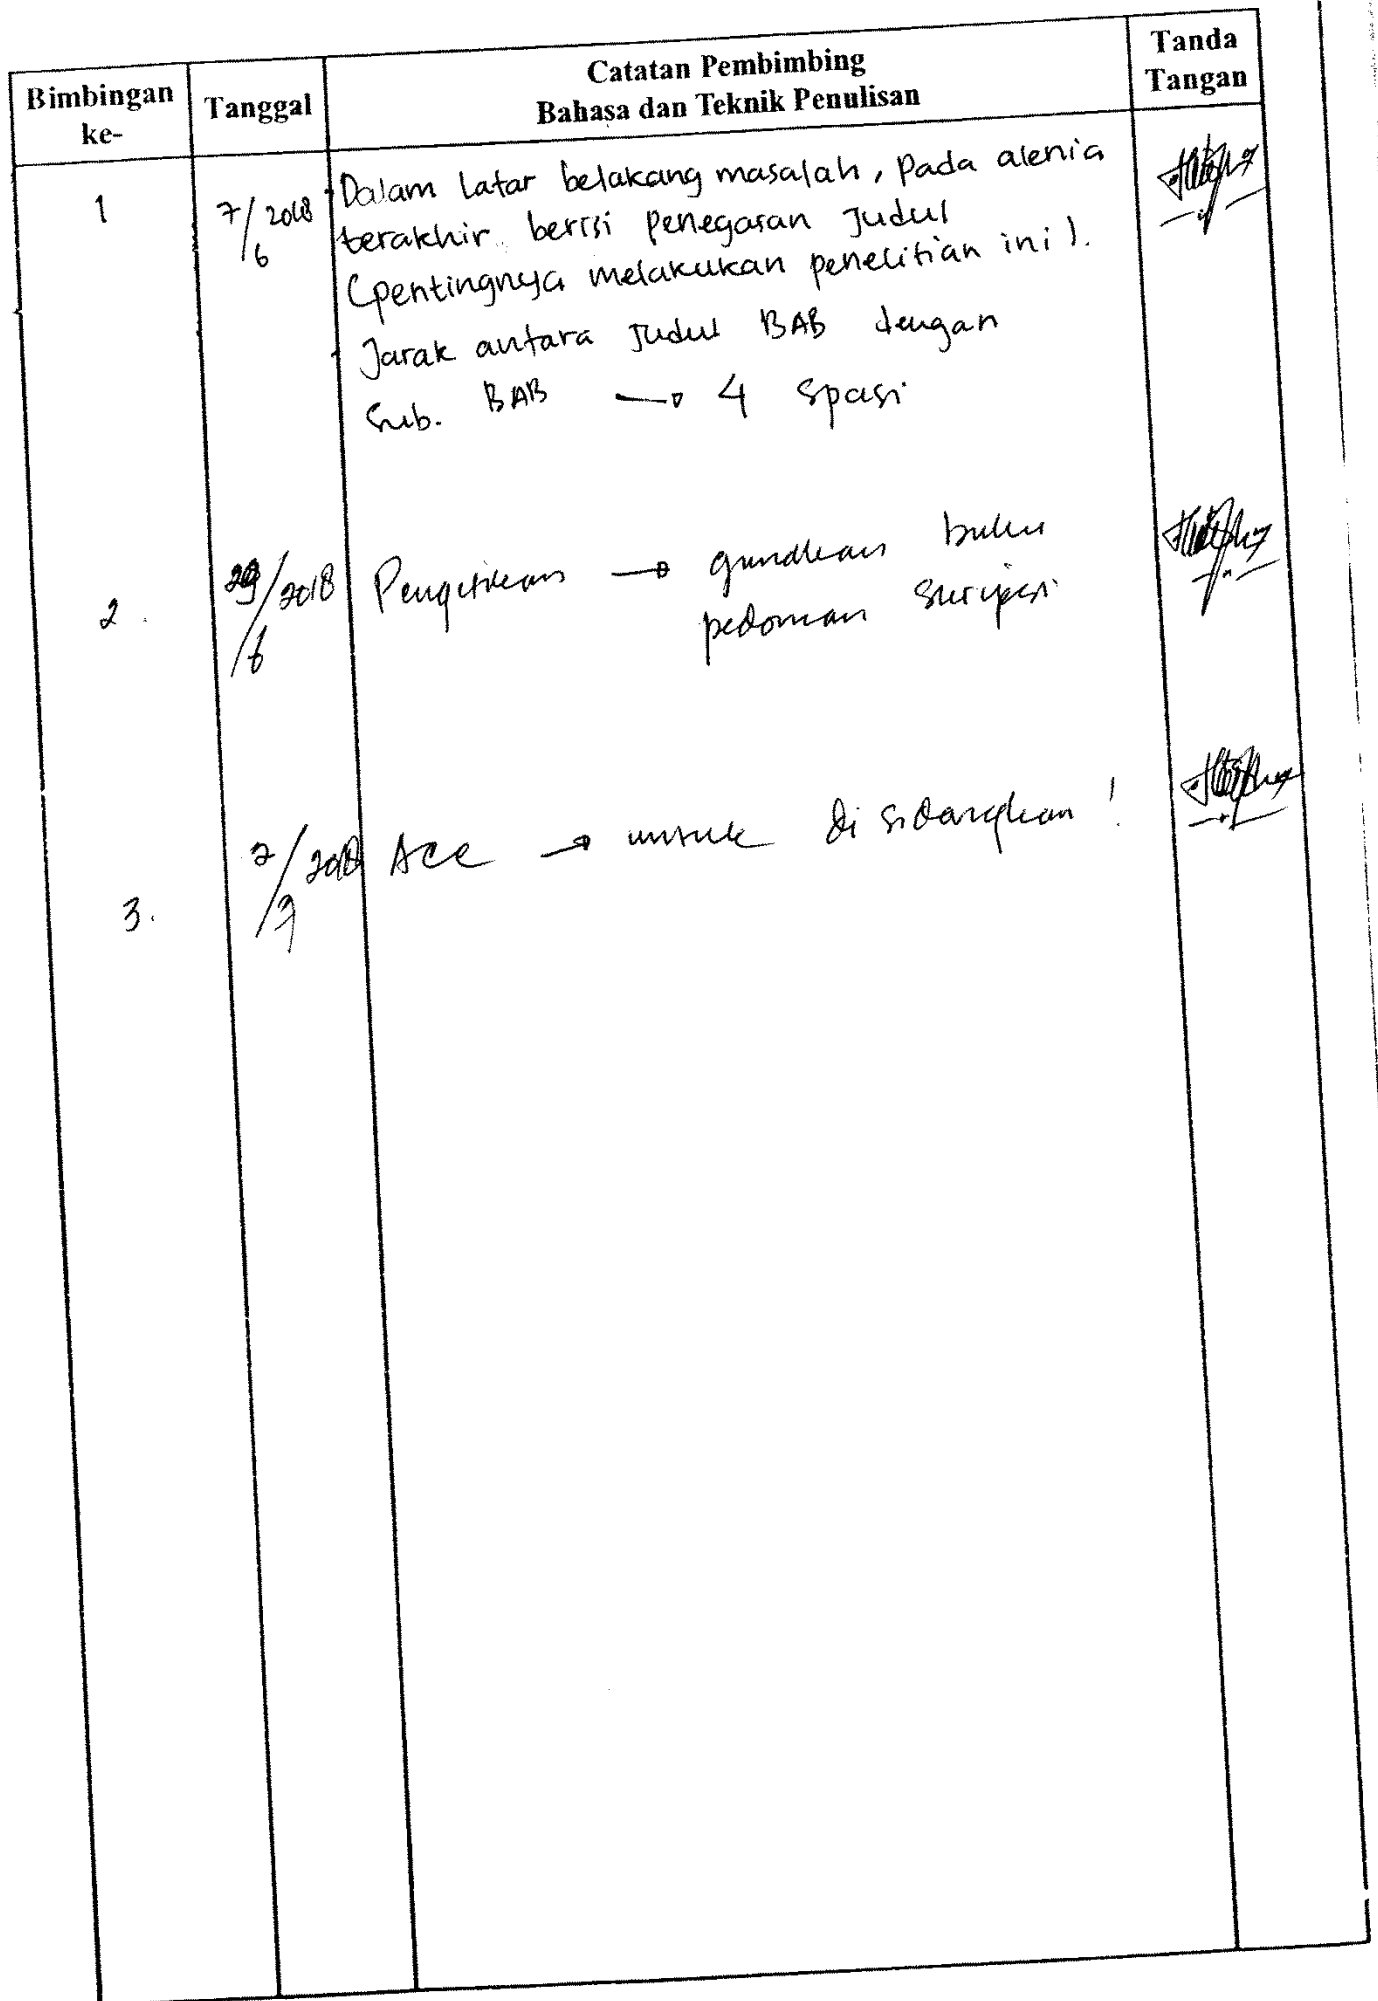 Bimbingan ke-
Tanggal
Catatan Pembimbing
Bahasa dan Teknik Penulisan
Tanda Tangan
1
7/6 2018
- Dalam latar belakang masalah, pada alenia
terakhir berisi penegasan Judul
(pentingnya melakukan penelitian ini).
- Jarak antara Judul BAB dengan
Sub. BAB → 4 spasi
2.
/6 2018
Pengetikan → gunakan buku
pedoman skripsi
3.
2/7 2018
Acc → untuk di sidangkan!